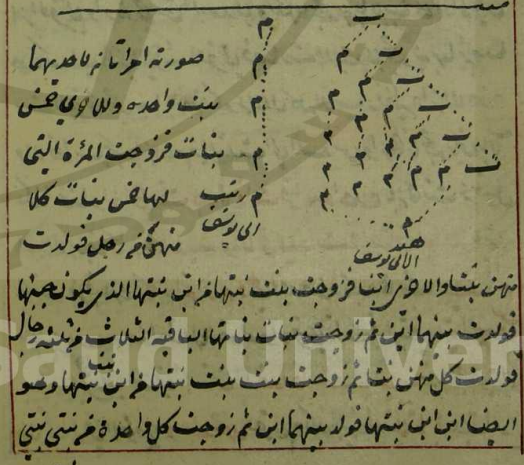 صورته امراتانه لاحديهما
بنت واحدة وللاخرى خمس
بنات فزوجت المرأة التى
لها خمس بنات كلا
منهن من رجل فولدت
زينب
الى يوسف
هند
الى يوسف
منهن بنتا والاخرى ابنا فزوجت بنت بنتها من ابن بنتها الذى يكون
فولدت بينهما ابن ثم زوجت بنات بناتها الباقية الثلاث من ثلثة رجال
فولدت كل منهن بنت ثم زوجت بنت بنت بنتها من ابن بنت بنتها وهو
ايضا ابن ابن بنتها فولد بينهما ابن ثم زوجت كل واحدة من بنتى بنتى